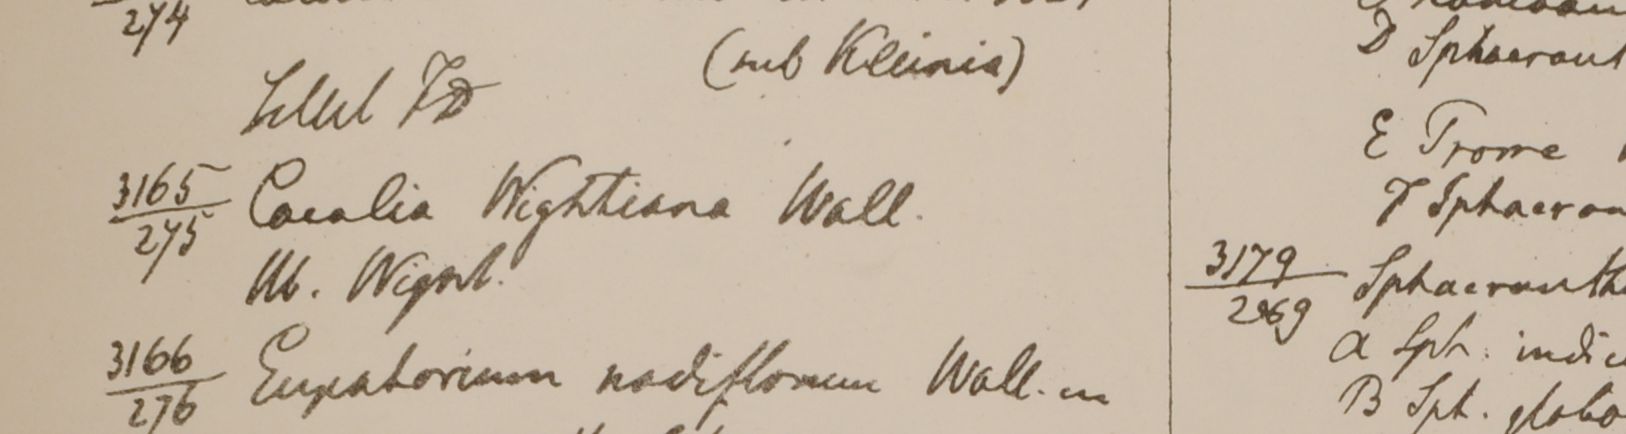 274
(sub Kleinia)
3165
275 Cacalia Wightiana Wall.
Hb. Wight.
3166
276 Eupatorium nodiflorum Wall. in
D Sphaerant
E Trome
F Sphaeran
3179
2969 Sphaeranth
a Sph. indic
B Sph. globo